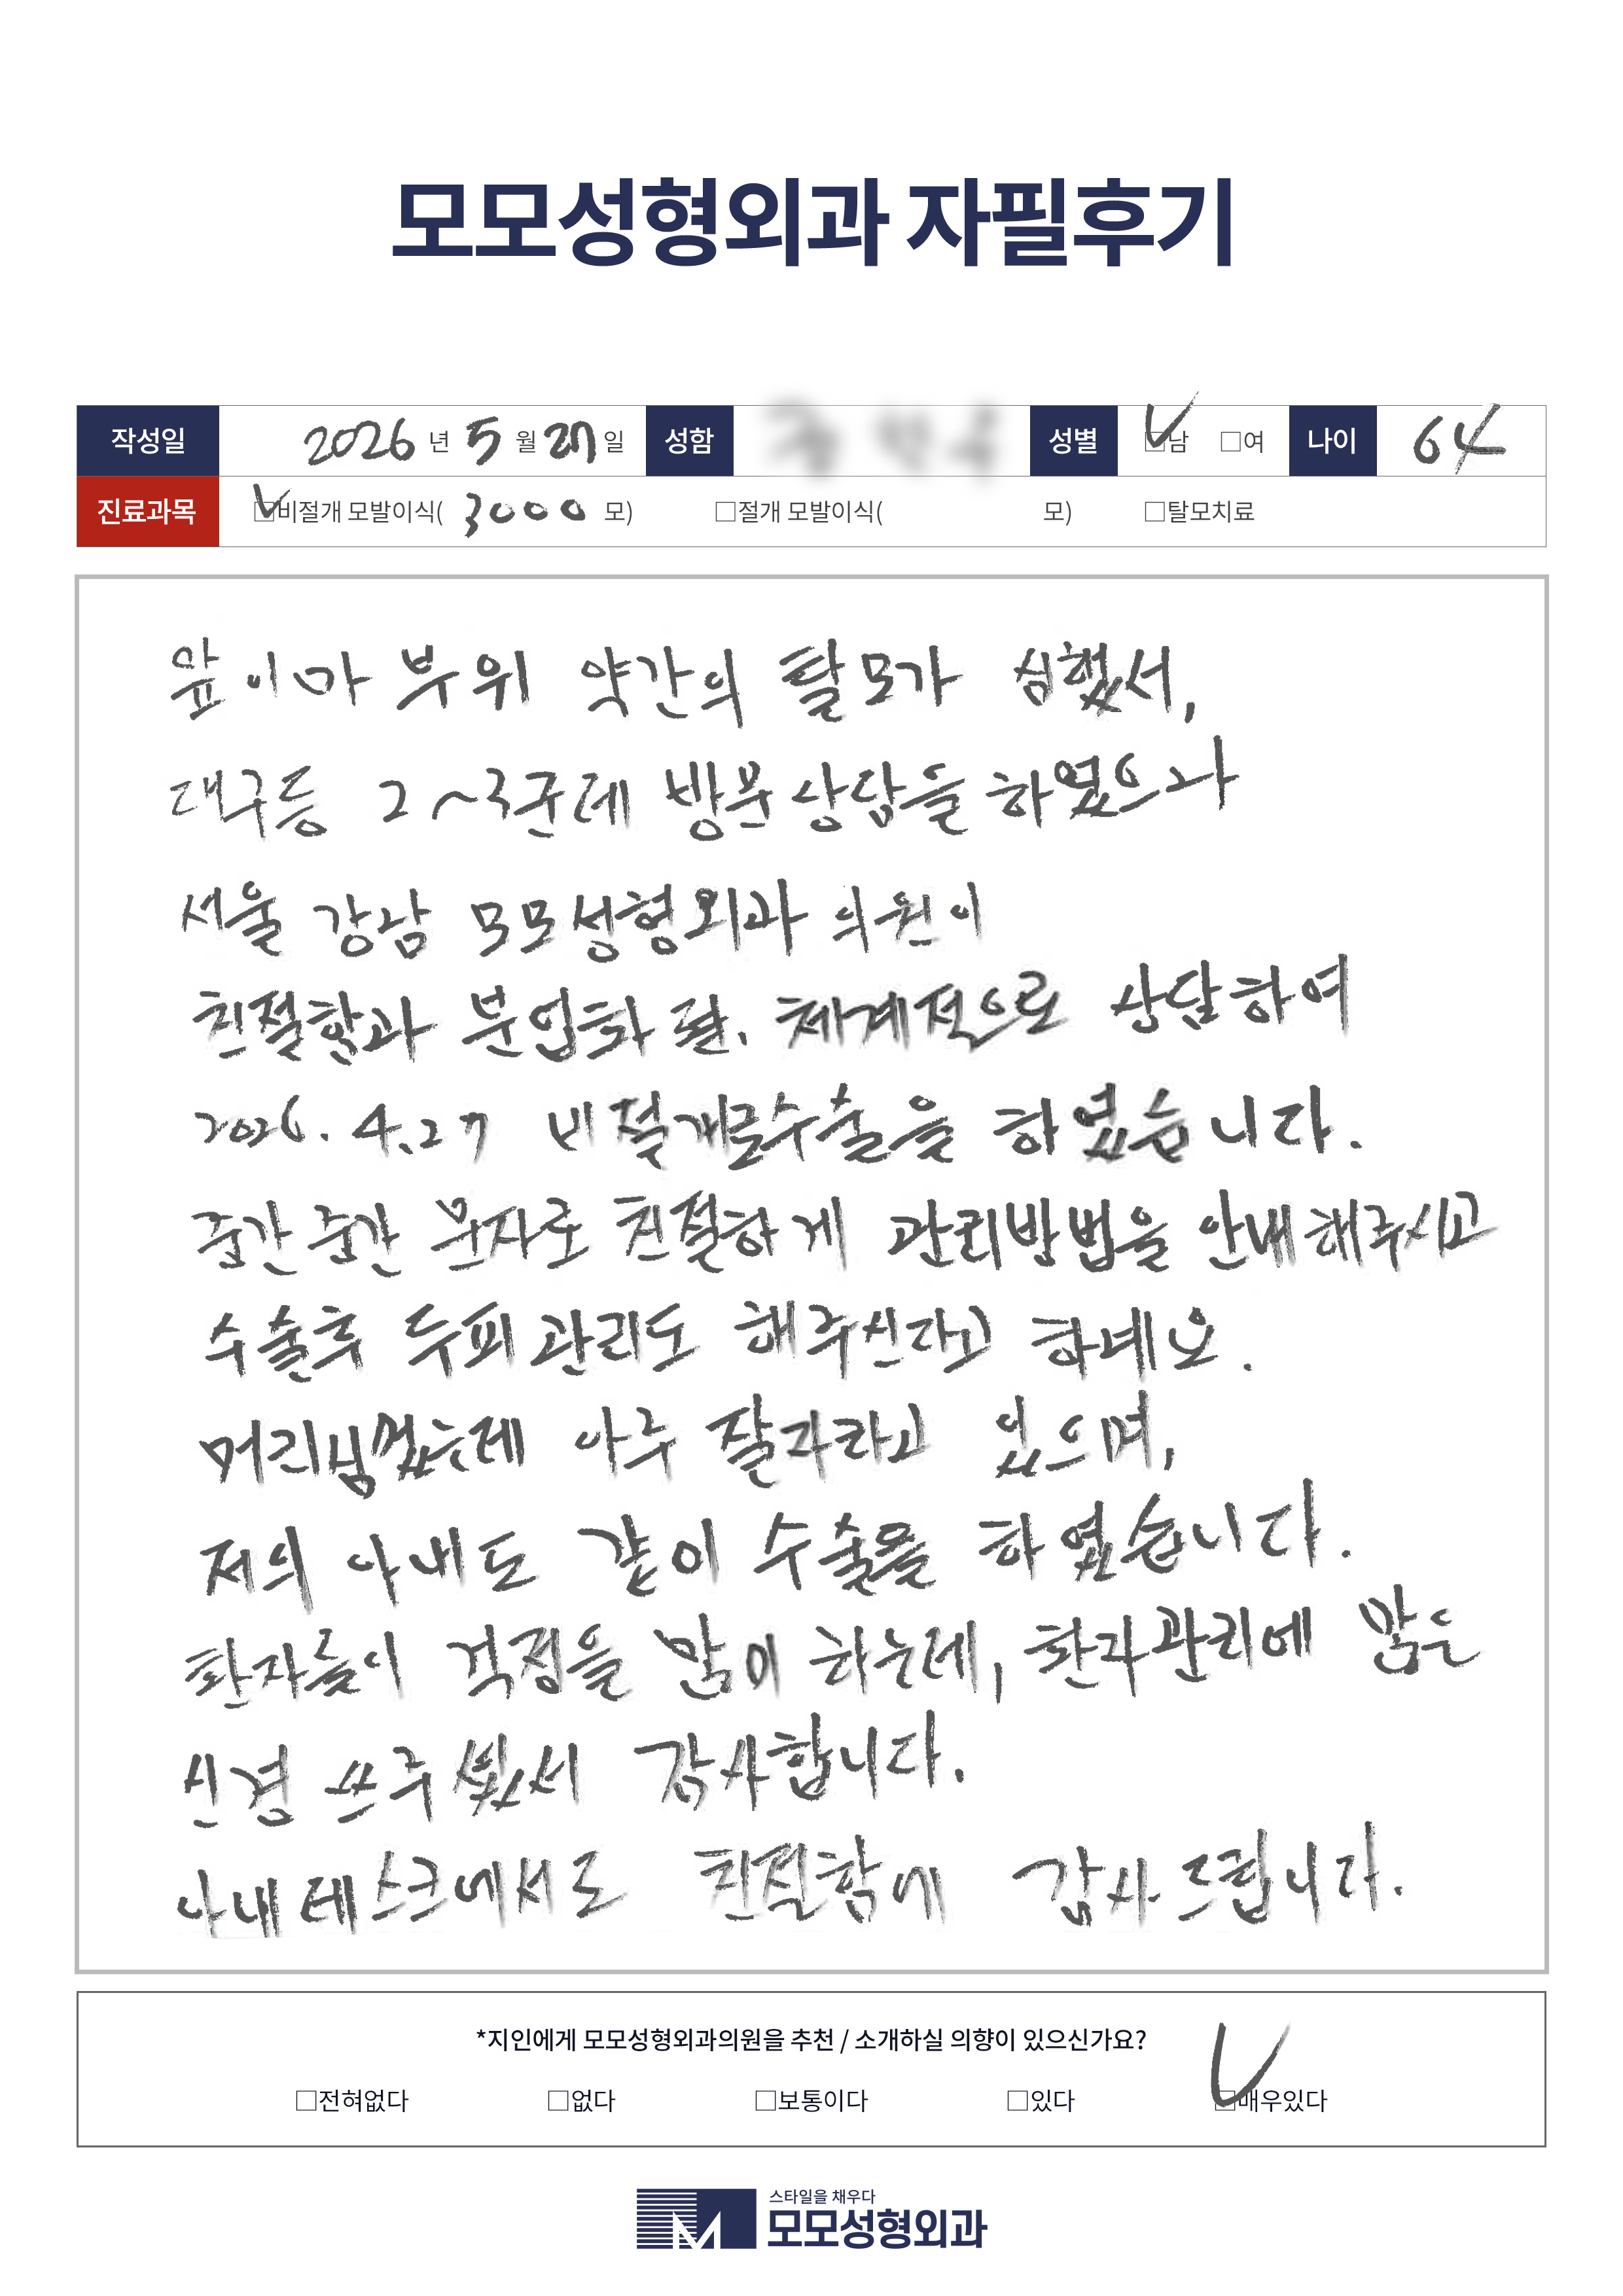 모모성형외과 자필후기
작성일 2026 년 5 월 27 일 성함 성별 ☑남 □여 나이 64
진료과목 ☑비절개 모발이식( 3000 모) □절개 모발이식( 모) □탈모치료
앞이마 부위 약간의 탈모가 심했서,
대구등 2~3군데 방문상담을 하였으나
서울 강남 모모성형외과 의원이
친절함과 분업화 된. 체계적으로 상담하여
2026. 4.27 비절개로수술을 하였습니다.
중간중간 문자로 친절하게 관리방법을 안내해주시고
수술후 두피관리도 해주신다고 하네요.
머리심었는데 아주 잘자라고 있으며,
저의 아내도 같이 수술을 하였습니다.
환자들이 걱정을 많이 하는데, 환자관리에 많은
신경 쓰주셨서 감사합니다.
안내데스크에서도 친절함에 감사드립니다.
*지인에게 모모성형외과의원을 추천 / 소개하실 의향이 있으신가요?
□전혀없다 □없다 □보통이다 □있다 ☑매우있다
스타일을 채우다
모모성형외과